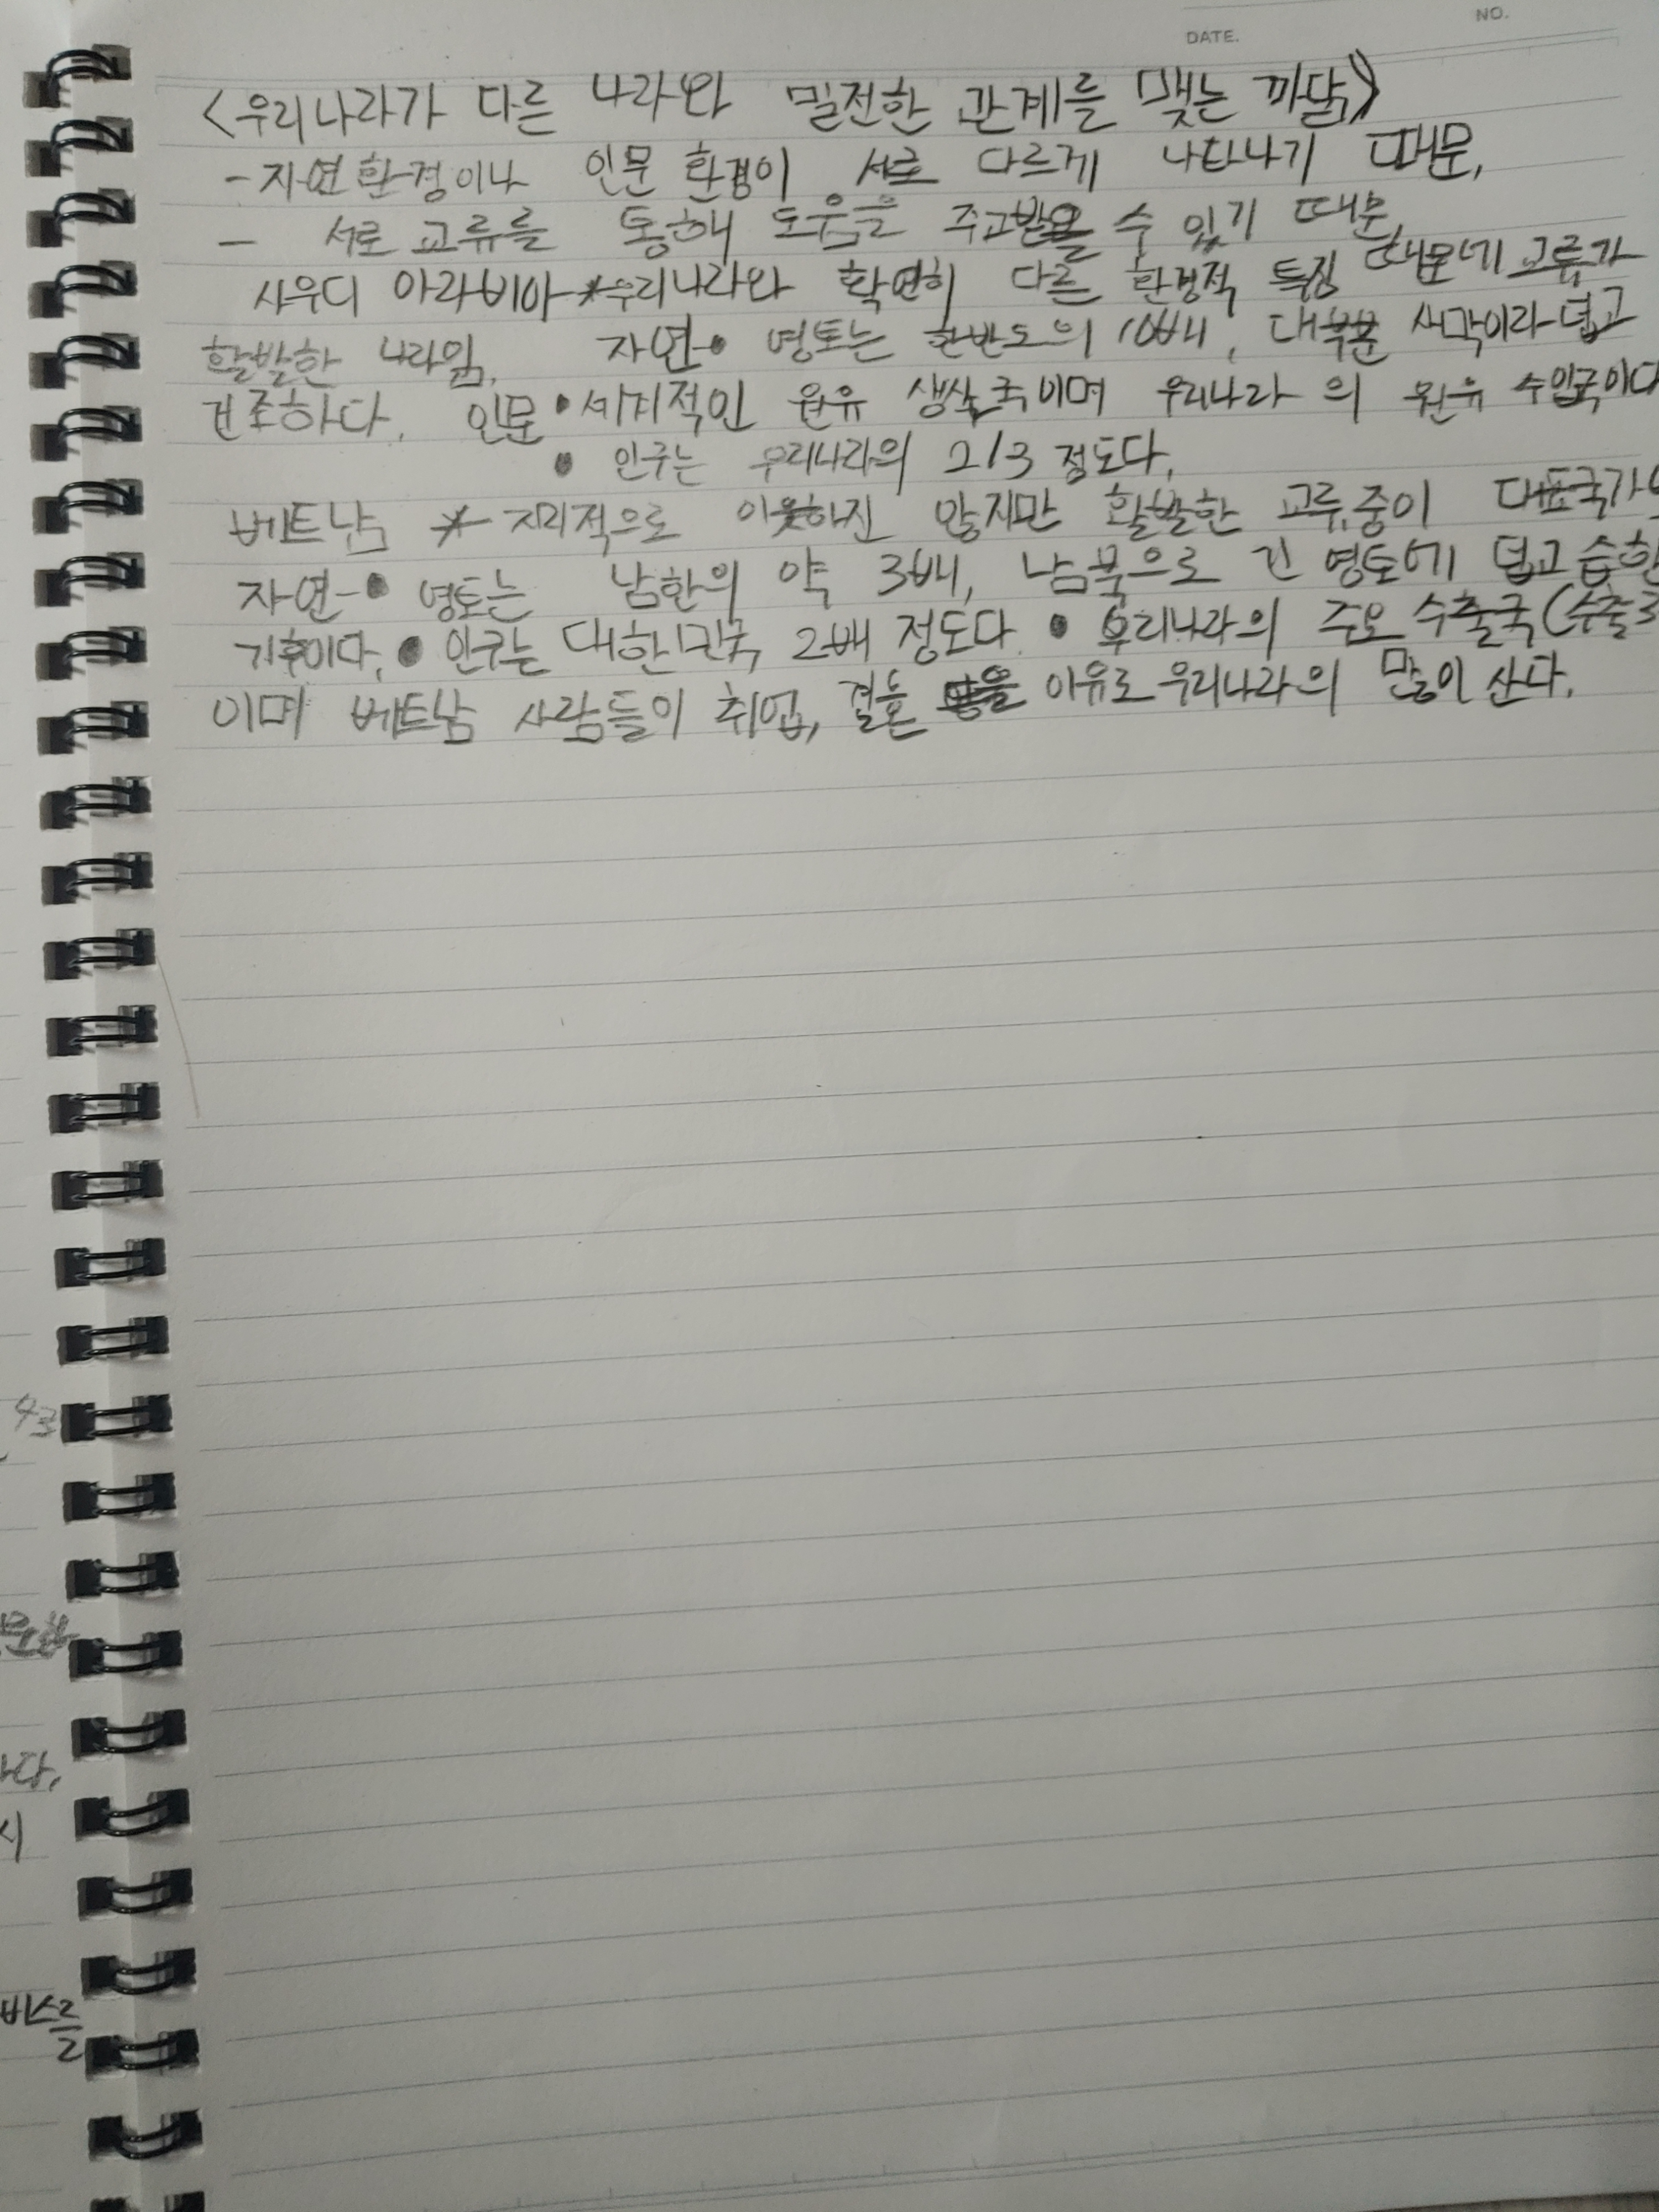 NO.
DATE.
<우리나라가 다른 나라와 밀전한 관계를 맺는 까닭>
- 자연환경이나 인문 환경이 서로 다르게 나타나기 때문,
- 서로 교류를 통해 도움을 주고받을 수 있기 때문,
사우디 아라비아 * 우리나라와 확연히 다른 환경적 특징 때문에 교류가
활발한 나라임. 자연-• 영토는 한반도의 10배, 대부분 사막이라 덥고
건조하다. 인문 • 세계적인 원유 생산국이며 우리나라의 원유 수입국이다
• 인구는 우리나라의 2/3 정도다.
베트남 * 지리적으로 이웃하진 않지만 활발한 교류중이 대표국가
자연-• 영토는 남한의 약 3배, 남북으로 긴 영토에 덥고 습한
기후이다. • 인구는 대한민국 2배 정도다. • 우리나라의 주요 수출국(수출3
이며 베트남 사람들이 취업, 결혼 이유로 우리나라의 많이 산다.